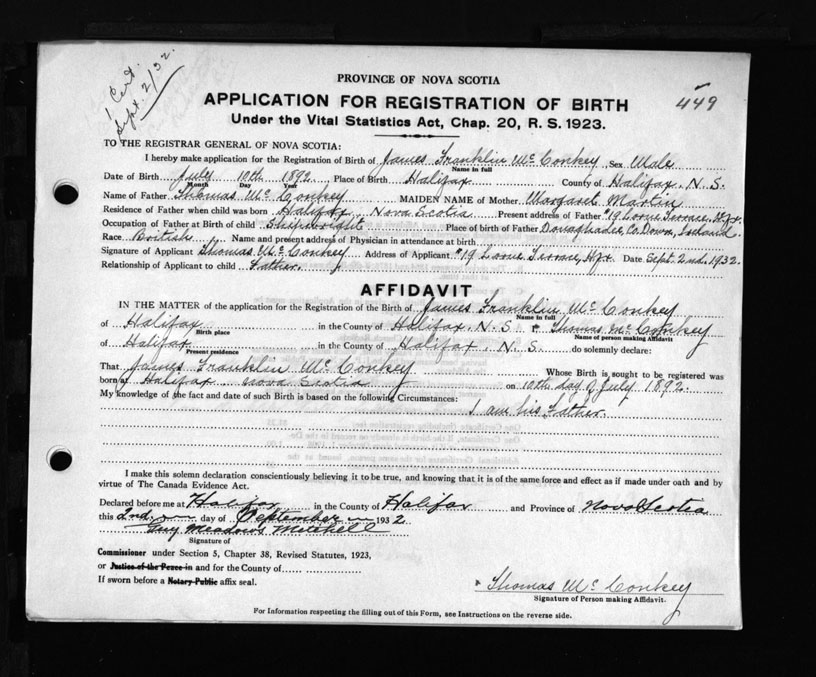 1 Cert.
Sept. 2/32.
449
PROVINCE OF NOVA SCOTIA
APPLICATION FOR REGISTRATION OF BIRTH
Under the Vital Statistics Act, Chap. 20, R. S. 1923.
TO THE REGISTRAR GENERAL OF NOVA SCOTIA:
I hereby make application for the Registration of Birth of James Franklin McConkey Sex Male
Name in full
Date of Birth July 10th 1892 Place of Birth Halifax County of Halifax, N. S.
Month Day Year
Name of Father Thomas McConkey MAIDEN NAME of Mother Margaret Martin
Residence of Father when child was born Halifax Nova Scotia Present address of Father #19 Lorne Terrace, Hfx.
Occupation of Father at Birth of child Shipwright Place of birth of Father Donaghadee, Co. Down, Ireland
Race British Name and present address of Physician in attendance at birth
Signature of Applicant Thomas McConkey Address of Applicant #19 Lorne Terrace, Hfx Date Sept. 2nd. 1932.
Relationship of Applicant to child Father.
AFFIDAVIT
IN THE MATTER of the application for the Registration of the Birth of James Franklin McConkey
Name in full
of Halifax in the County of Halifax, N. S. Thomas McConkey
Birth place Name of person making Affidavit
of Halifax in the County of Halifax, N. S. do solemnly declare:
Present residence
That James Franklin McConkey Whose Birth is sought to be registered was
born at Halifax Nova Scotia on 10th day of July 1892.
My knowledge of the fact and date of such Birth is based on the following Circumstances:
I am his Father.
I make this solemn declaration conscientiously believing it to be true, and knowing that it is of the same force and effect as if made under oath and by
virtue of The Canada Evidence Act.
Declared before me at Halifax in the County of Halifax and Province of Nova Scotia
this 2nd day of September 1932
Guy Meadows Mitchell
Signature of
Commissioner under Section 5, Chapter 38, Revised Statutes, 1923,
or Justice of the Peace in and for the County of
If sworn before a Notary Public affix seal.
Thomas McConkey
Signature of Person making Affidavit.
For Information respecting the filling out of this Form, see Instructions on the reverse side.